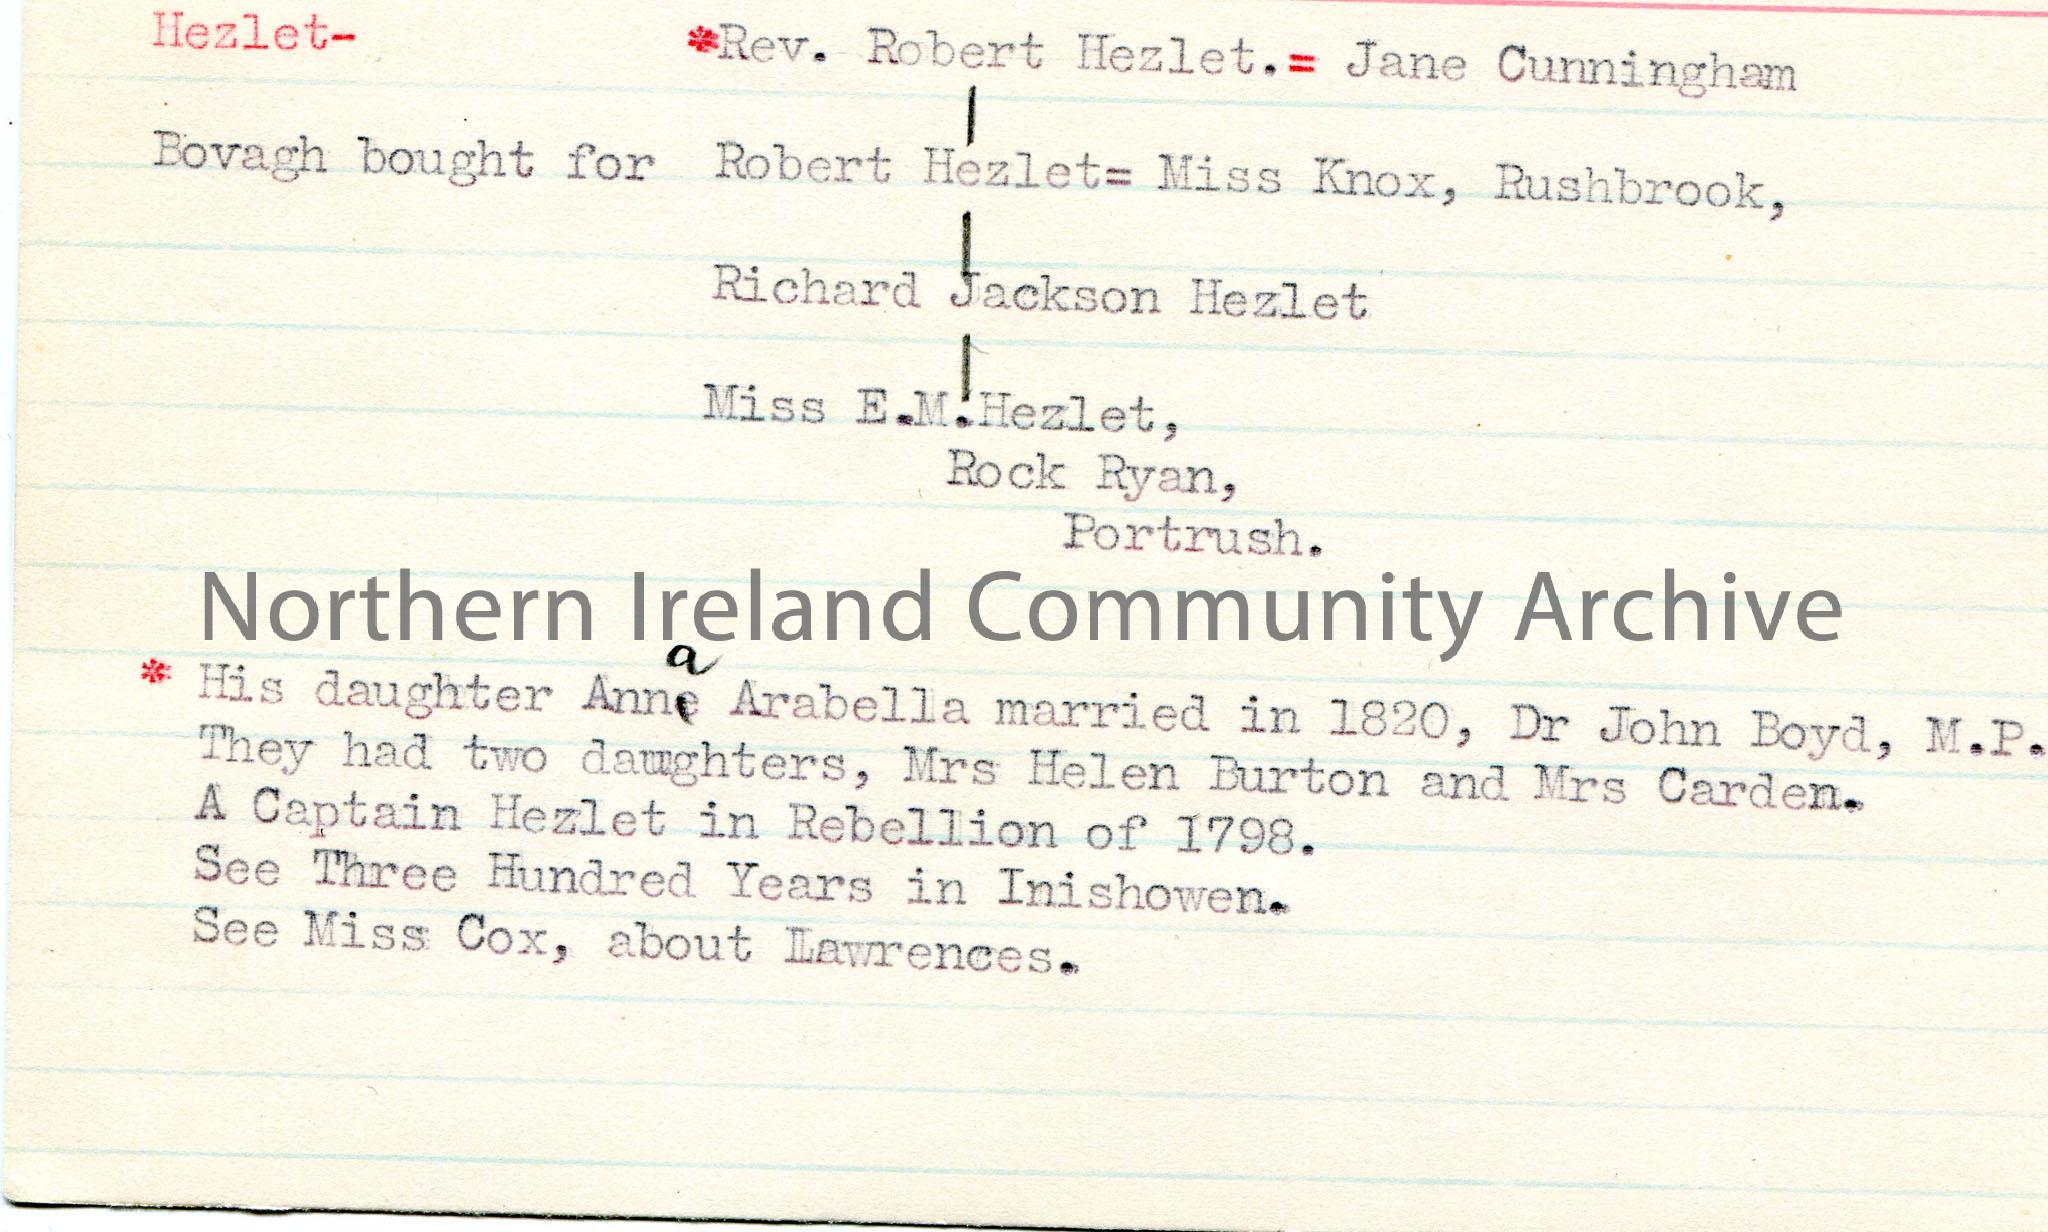 Hezlet- *Rev. Robert Hezlet.= Jane Cunningham
Bovagh bought for Robert Hezlet= Miss Knox, Rushbrook,
Richard Jackson Hezlet
Miss E.M.Hezlet,
Rock Ryan,
Portrush.
Northern Ireland Community Archive
a
* His daughter Anne Arabella married in 1820, Dr John Boyd, M.P.
They had two daughters, Mrs Helen Burton and Mrs Carden.
A Captain Hezlet in Rebellion of 1798.
See Three Hundred Years in Inishowen.
See Miss Cox, about Lawrences.